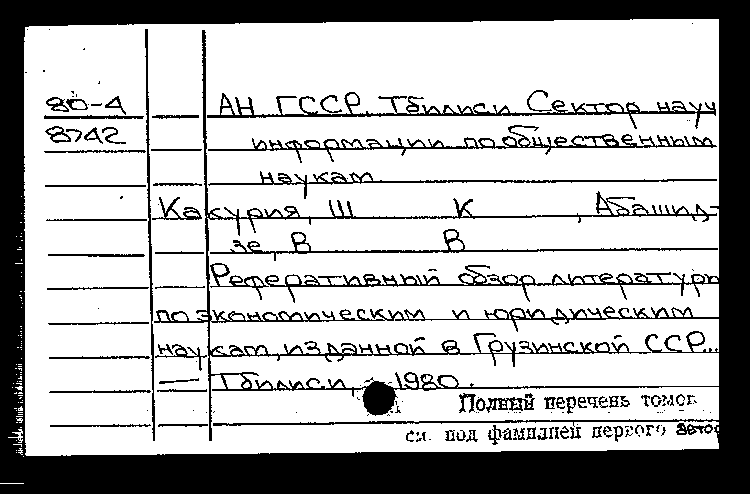 80-4 АН ГССР. Тбилиси Сектор науч
8742 информации по общественным
наукам
Какурия, Ш К , Абашид-
зе, В В
Реферативный обзор литературы
по экономическим и юридическим
наукам, изданной в Грузинской ССР...
— Тбилиси, 1980.
Полный перечень томов
см. под фамилией первого автор